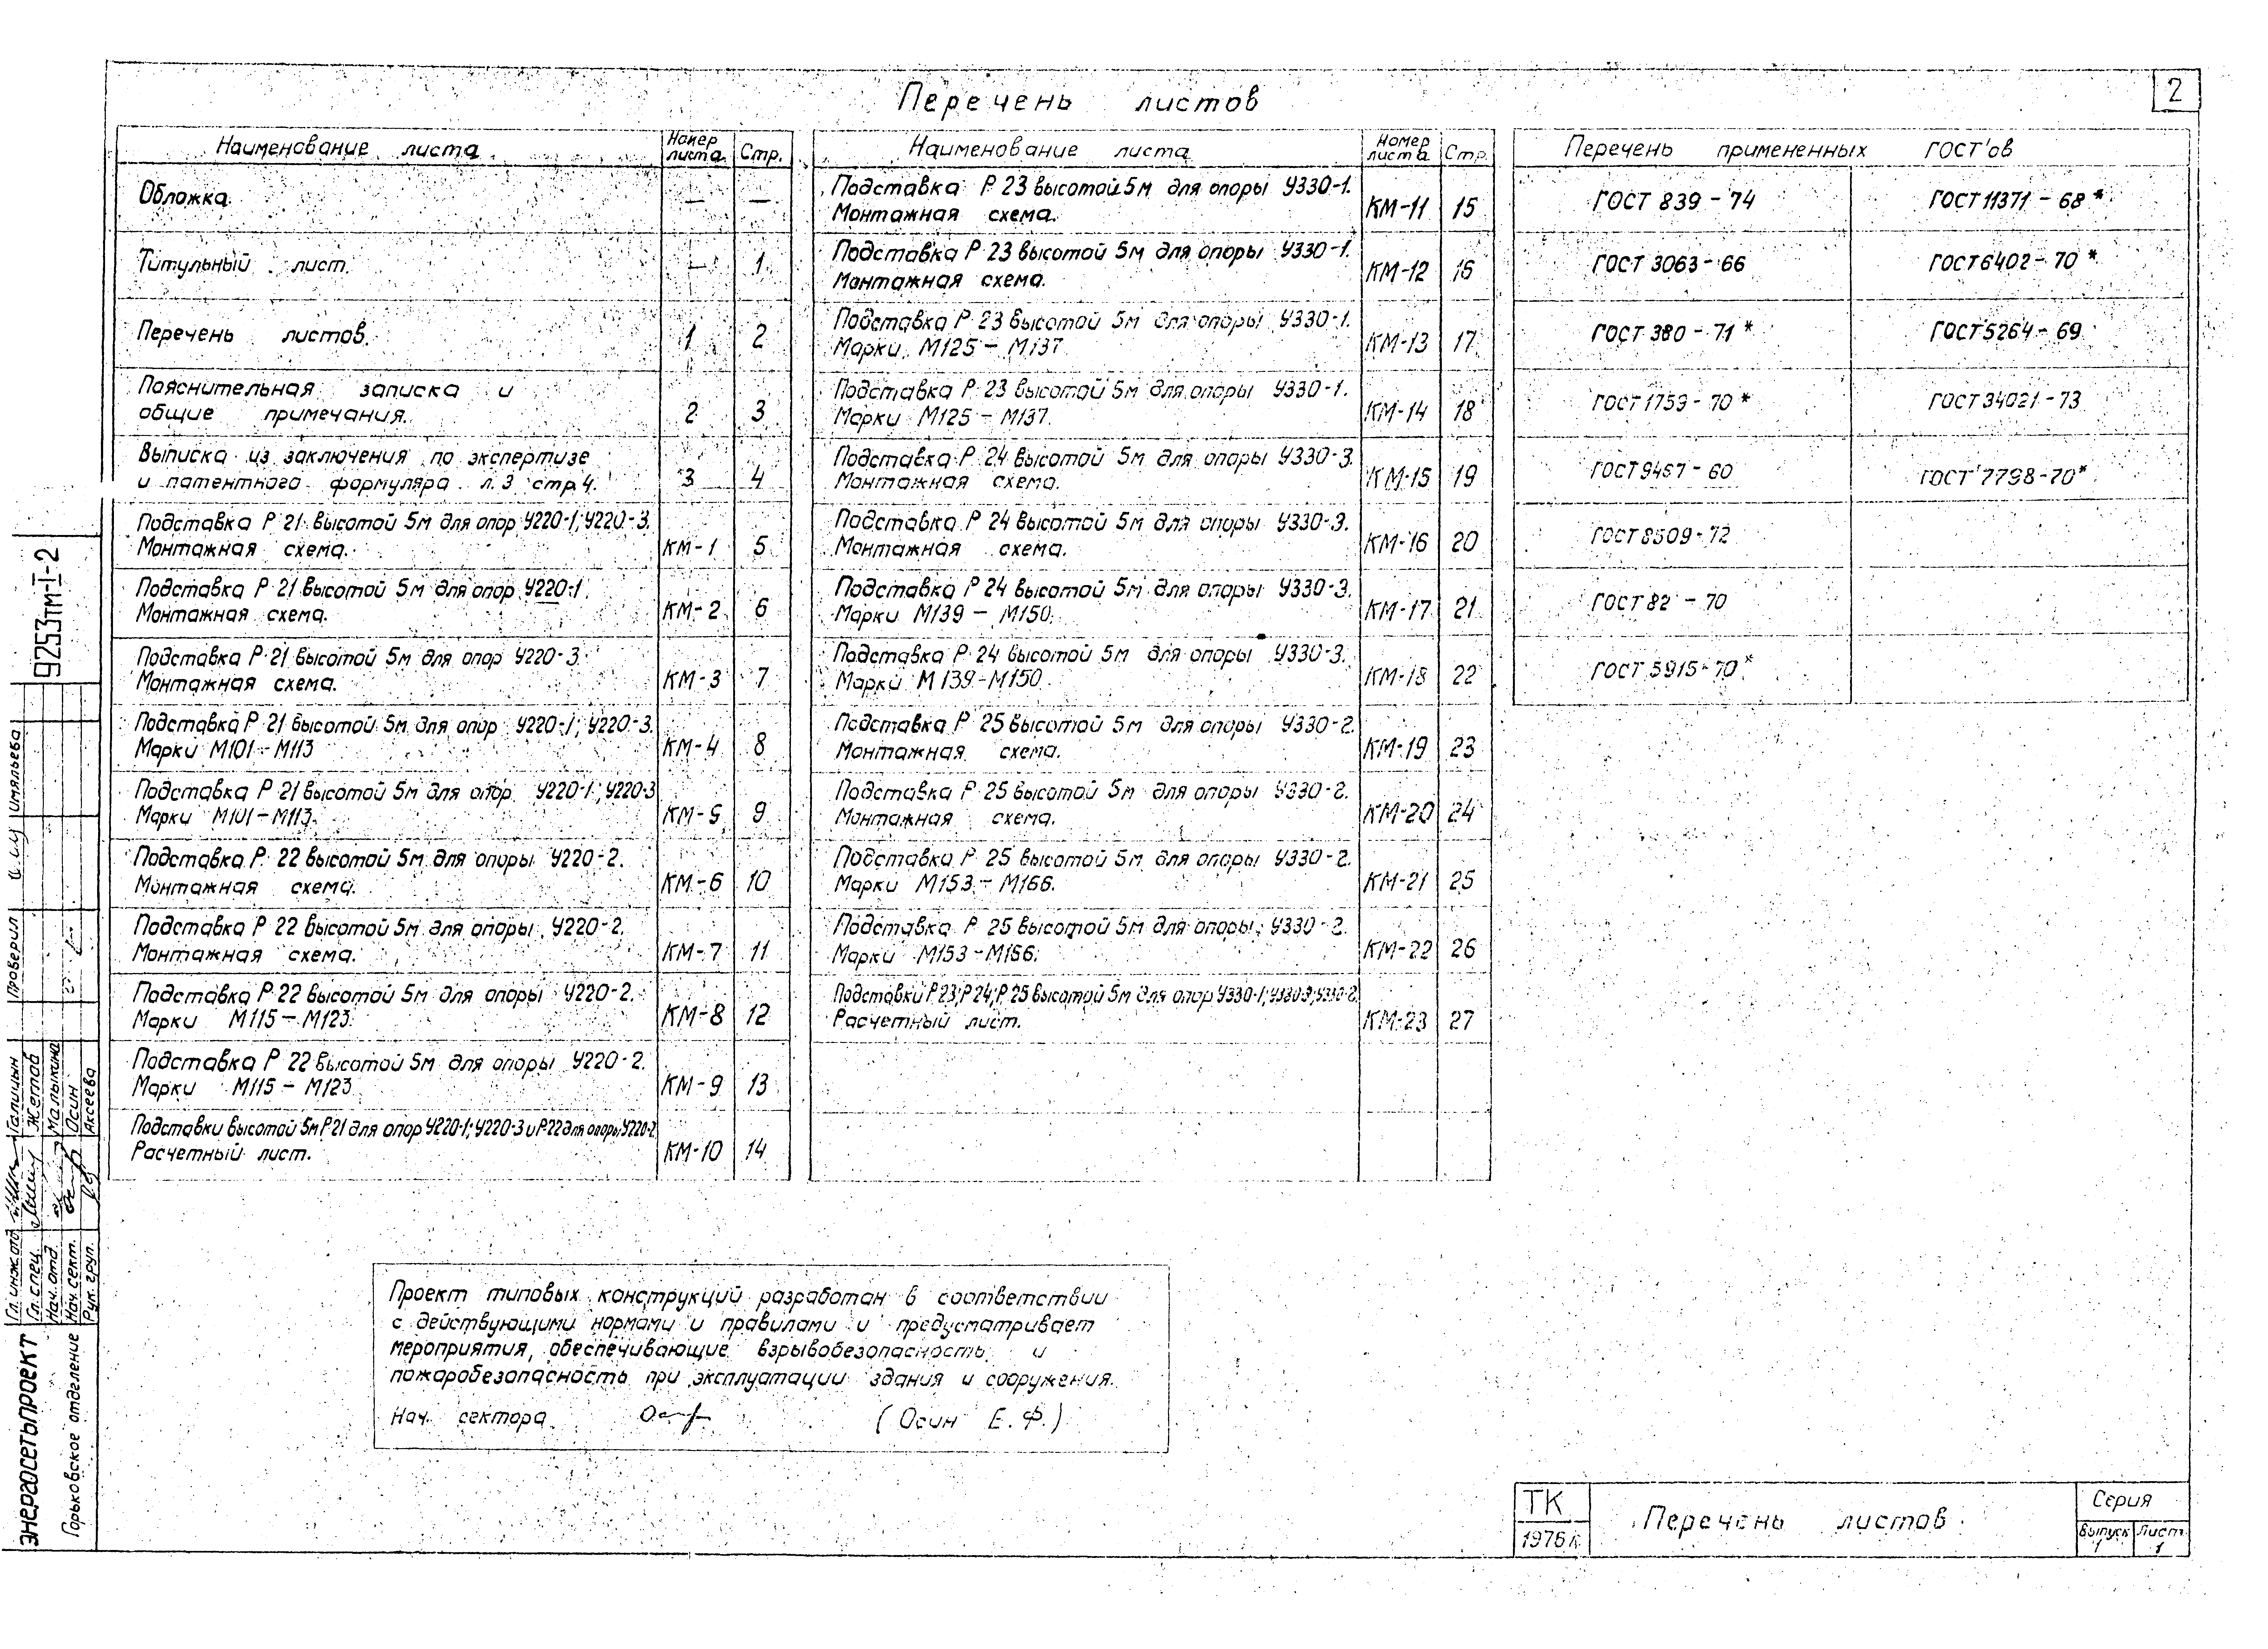 2
Перечень листов
Наименование листа Номер листа Стр.
Обложка. — —
Титульный лист. — 1
Перечень листов. 1 2
Пояснительная записка и
общие примечания. 2 3
Выписка из заключения по экспертизе
и патентного формуляра л.3 стр.4. 3 4
Подставка Р 21 высотой 5м для опор У220-1; У220-3.
Монтажная схема. КМ-1 5
Подставка Р 21 высотой 5м для опор У220-1.
Монтажная схема. КМ-2 6
Подставка Р 21 высотой 5м для опор У220-3.
Монтажная схема. КМ-3 7
Подставка Р 21 высотой 5м для опор У220-1; У220-3.
Марки М101-М113 КМ-4 8
Подставка Р 21 высотой 5м для опор У220-1; У220-3
Марки М101-М113. КМ-5 9
Подставка Р 22 высотой 5м для опоры У220-2.
Монтажная схема. КМ-6 10
Подставка Р 22 высотой 5м для опоры У220-2.
Монтажная схема. КМ-7 11
Подставка Р 22 высотой 5м для опоры У220-2.
Марки М115-М123. КМ-8 12
Подставка Р 22 высотой 5м для опоры У220-2.
Марки М115-М123. КМ-9 13
Подставки высотой 5м Р21 для опор У220-1; У220-3 и Р-22 для опоры У220-2
Расчетный лист. КМ-10 14
Наименование листа Номер листа Стр.
Подставка Р 23 высотой 5м для опоры У330-1.
Монтажная схема. КМ-11 15
Подставка Р 23 высотой 5м для опоры У330-1.
Монтажная схема. КМ-12 16
Подставка Р 23 высотой 5м для опоры У330-1.
Марки М125-М137 КМ-13 17
Подставка Р 23 высотой 5м для опоры У330-1.
Марки М125-М137. КМ-14 18
Подставка Р 24 высотой 5м для опоры У330-3.
Монтажная схема. КМ-15 19
Подставка Р 24 высотой 5м для опоры У330-3.
Монтажная схема. КМ-16 20
Подставка Р 24 высотой 5м для опоры У330-3.
Марки М139-М150. КМ-17 21
Подставка Р 24 высотой 5м для опоры У330-3.
Марки М139-М150 КМ-18 22
Подставка Р 25 высотой 5м для опоры У330-2.
Монтажная схема. КМ-19 23
Подставка Р 25 высотой 5м для опоры У330-2.
Монтажная схема. КМ-20 24
Подставка Р 25 высотой 5м для опоры У330-2.
Марки М153-М166. КМ-21 25
Подставка Р 25 высотой 5м для опоры У330-2.
Марки М153-М166. КМ-22 26
Подставки Р 23; Р 24; Р 25 высотой 5м для опор У330-1; У330-3; У330-2.
Расчетный лист. КМ-23 27
Перечень примененных ГОСТ'ов
ГОСТ 839-74 ГОСТ 11371-68*
ГОСТ 3063-66 ГОСТ 6402-70*
ГОСТ 380-71* ГОСТ 5264-69
ГОСТ 1759-70* ГОСТ 34021-73
ГОСТ 9467-60 ГОСТ 7798-70*
ГОСТ 8509-72
ГОСТ 82-70
ГОСТ 5915-70*
Проект типовых конструкций разработан в соответствии
с действующими нормами и правилами и предусматривает
мероприятия, обеспечивающие взрывобезопасность и
пожаробезопасность при эксплуатации здания и сооружения.
Нач. сектора (Осин Е.Ф.)
ТК
1976г.
Перечень листов
Серия
Выпуск Лист
1 1
9253тм-I-2
Проверил
Гл. инж. отд. Галицин
Гл. спец. Жетов
Нач. отд. Малыкина
Нач. сект. Осин
Рук. груп. Аксеева
ЭНЕРГОСЕТЬПРОЕКТ
Горьковское отделение